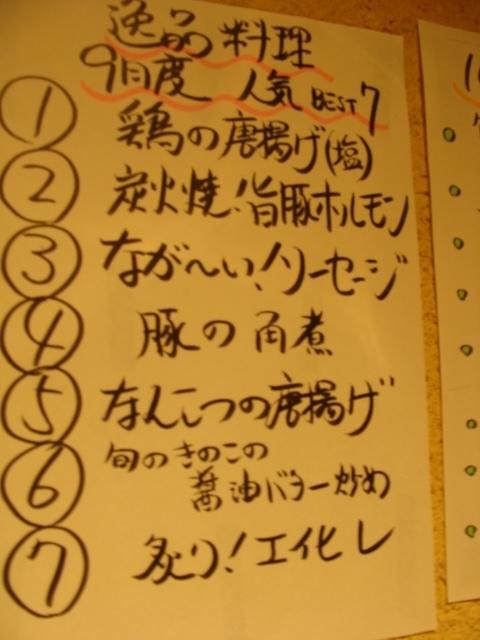 逸品料理
9月度 人気 BEST 7
① 鶏の唐揚げ(塩)
② 炭火焼!旨豚ホルモン
③ なが〜い!ソーセージ
④ 豚の角煮
⑤ なんこつの唐揚げ
⑥ 旬のきのこの
醤油バター炒め
⑦ 炙り!エイヒレ